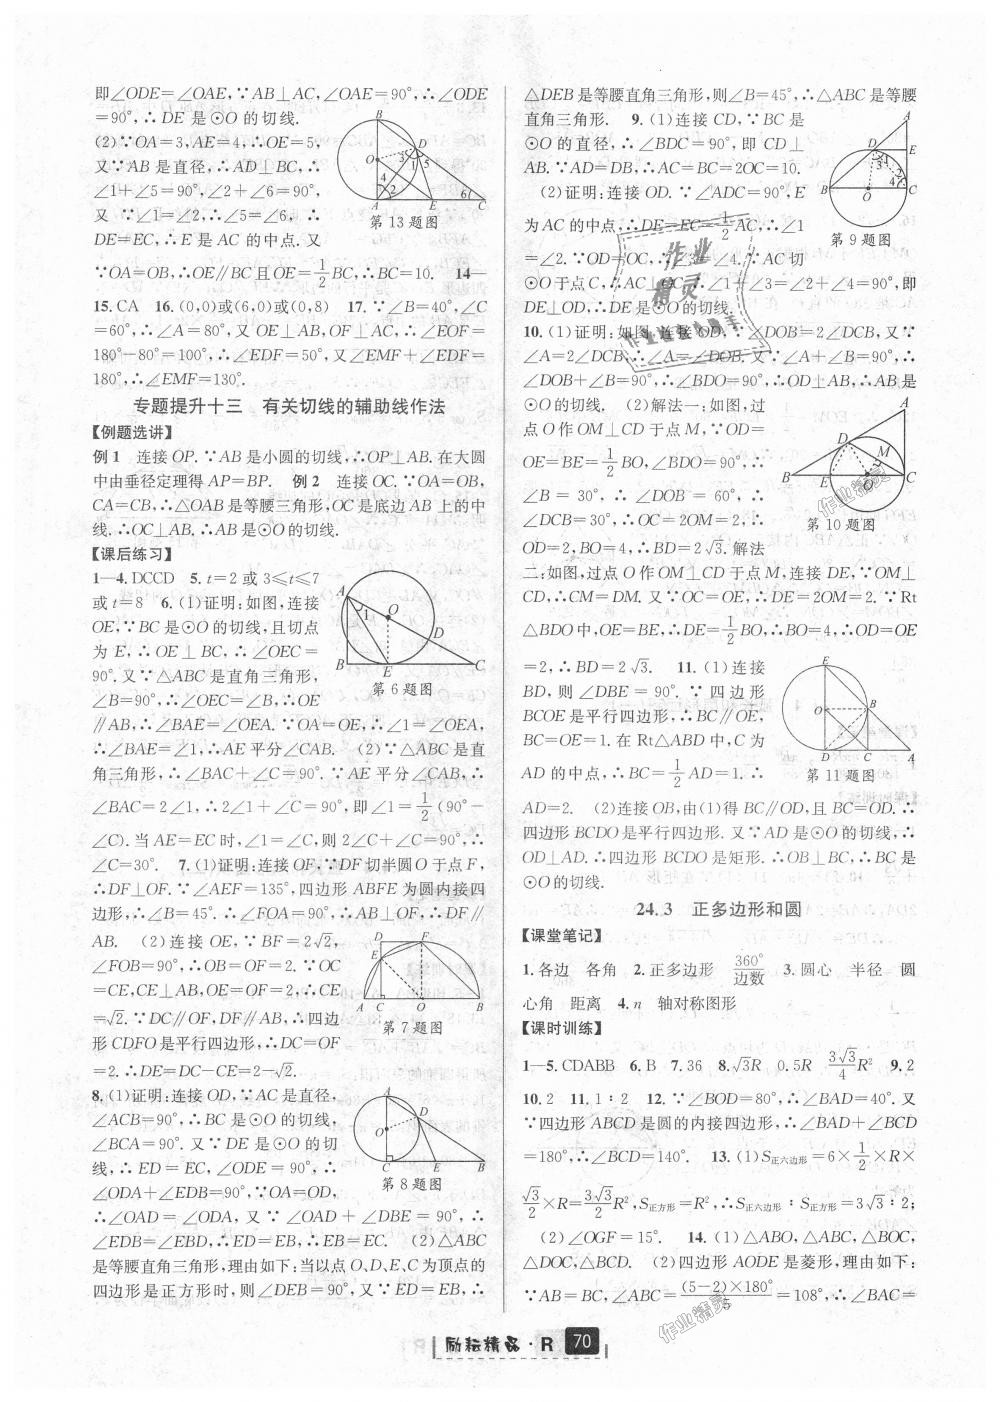 即∠ODE=∠OAE,∵AB⊥AC,∠OAE=90°,∴∠ODE
=90°,∴DE 是⊙O 的切线.
(2)∵OA=3,AE=4,∴OE=5,
又∵AB 是直径,∴AD⊥BC,∴
∠1+∠5=90°,∠2+∠6=90°,
又 ∵∠1=∠2,∴∠5=∠6, ∴
DE=EC,∴E 是 AC 的中点. 又
第 13 题图
∵OA=OB,∴OE∥BC 且 OE=1/2BC,∴BC=10. 14—
15. CA 16. (0,0)或(6,0)或(0,8) 17. ∵∠B=40°,∠C
=60°,∴∠A=80°,又 OE⊥AB,OF⊥AC,∴∠EOF=
180°−80°=100°,∴∠EDF=50°,又∠EMF+∠EDF=
180°,∴∠EMF=130°.
专题提升十三 有关切线的辅助线作法
【例题选讲】
例 1 连接 OP. ∵AB 是小圆的切线,∴OP⊥AB. 在大圆
中由垂径定理得 AP=BP. 例 2 连接 OC. ∵OA=OB,
CA=CB,∴△OAB 是等腰三角形,OC 是底边 AB 上的中
线. ∴OC⊥AB. ∴AB 是⊙O 的切线.
【课后练习】
1—4. DCCD 5. t=2 或 3≤t≤7
或 t=8 6. (1)证明:如图,连接
OE,∵BC 是⊙O 的切线,且切点
为 E, ∴OE⊥BC, ∴∠OEC=
90°. 又∵△ABC 是直角三角形,
∠B=90°,∴∠OEC=∠B,∴OE
第 6 题图
∥AB,∴∠BAE=∠OEA. ∵OA=OE,∴∠1=∠OEA,
∴∠BAE=∠1,∴AE 平分∠CAB. (2)∵△ABC 是直
角三角形,∴∠BAC+∠C=90°. ∵AE 平分∠CAB,∴
∠BAC=2∠1,∴2∠1+∠C=90°,即∠1=1/2(90°−
∠C). 当 AE=EC 时,∠1=∠C,则 2∠C+∠C=90°,∴
∠C=30°. 7. (1)证明:连接 OF,∵DF 切半圆 O 于点 F,
∴DF⊥OF. ∵∠AEF=135°,四边形 ABFE 为圆内接四
边形,∴∠B=45°. ∴∠FOA=90°,∴AB⊥OF,∴DF∥
AB. (2)连接 OE,∵BF=2√2,
∠FOB=90°,∴OB=OF=2. ∵OC
=CE,CE⊥AB,OE=OF=2,∴CE
=√2. ∵DC∥OF,DF∥AB,∴四边
形 CDFO 是平行四边形,∴DC=OF
=2. ∴DE=DC−CE=2−√2.
第 7 题图
8. (1)证明:连接 OD,∵AC 是直径,
∠ACB=90°,∴BC 是⊙O 的切线,
∠BCA=90°. 又∵DE 是⊙O 的切
线,∴ED=EC,∠ODE=90°,∴
∠ODA+∠EDB=90°,∵OA=OD,
第 8 题图
∴∠OAD=∠ODA,又∵∠OAD+∠DBE=90°,∴
∠EDB=∠EBD,∴ED=EB,∴EB=EC. (2)△ABC
是等腰直角三角形,理由如下:当以点 O、D、E、C 为顶点的
四边形是正方形时,则∠DEB=90°,又∵ED=EB,∴
△DEB 是等腰直角三角形,则∠B=45°,∴△ABC 是等腰
直角三角形. 9. (1)连接 CD,∵BC 是
⊙O 的直径,∴∠BDC=90°,即 CD⊥
AB. ∵AD=DB,∴AC=BC=2OC=10.
(2)证明:连接 OD. ∵∠ADC=90°,E
为 AC 的中点,∴DE=EC=1/2AC,∴∠1
第 9 题图
=∠2. ∵OD=OC,∴∠3=∠4. ∵AC 切
⊙O 于点 C,∴AC⊥OC. ∴∠1+∠3=∠2+∠4=90°,即
DE⊥OD,∴DE 是⊙O 的切线.
10. (1)证明:如图,连接 OD,∵∠DOB=2∠DCB,又∵
∠A=2∠DCB,∴∠A=∠DOB. 又∵∠A+∠B=90°,∴
∠DOB+∠B=90°,∴∠BDO=90°,∴OD⊥AB,∴AB 是
⊙O 的切线. (2)解法一:如图,过
点 O 作 OM⊥CD 于点 M,∵OD=
OE=BE=1/2BO,∠BDO=90°,∴
∠B=30°, ∴∠DOB=60°, ∴
∠DCB=30°,∴OC=2OM=2,∴
第 10 题图
OD=2,BO=4,∴BD=2√3. 解法
二:如图,过点 O 作 OM⊥CD 于点 M,连接 DE,∵OM⊥
CD,∴CM=DM. 又∵OC=OE,∴DE=2OM=2. ∵Rt
△BDO 中,OE=BE,∴DE=1/2BO,∴BO=4,∴OD=OE
=2,∴BD=2√3. 11. (1)连接
BD,则∠DBE=90°. ∵四边形
BCOE 是平行四边形,∴BC∥OE,
BC=OE=1. 在 Rt△ABD 中,C 为
AD 的中点,∴BC=1/2AD=1. ∴
第 11 题图
AD=2. (2)连接 OB,由(1)得 BC∥OD,且 BC=OD. ∴
四边形 BCDO 是平行四边形. 又∵AD 是⊙O 的切线,∴
OD⊥AD. ∴四边形 BCDO 是矩形. ∴OB⊥BC,∴BC 是
⊙O 的切线.
24.3 正多边形和圆
【课堂笔记】
1. 各边 各角 2. 正多边形 360°/边数 3. 圆心 半径 圆
心角 距离 4. n 轴对称图形
【课时训练】
1—5. CDABB 6. B 7. 36 8. √3R 0.5R 3√3/4R² 9. 2
10. 2 11. 1∶2 12. ∵∠BOD=80°,∴∠BAD=40°. 又
∵四边形 ABCD 是圆的内接四边形,∴∠BAD+∠BCD
=180°,∴∠BCD=140°. 13. (1)S正六边形=6×1/2×R×
√3/2×R=3√3/2R²,S正方形=R²,∴S正六边形∶S正方形=3√3∶2;
(2)∠OGF=15°. 14. (1)△ABO,△ABC,△BOC,
△DOC,△BCD. (2)四边形 AODE 是菱形,理由如下:
∵AB=BC,∠ABC=(5−2)×180°/5=108°,∴∠BAC=
作业精灵
作业精灵
作业精灵
励耘精品·R 70